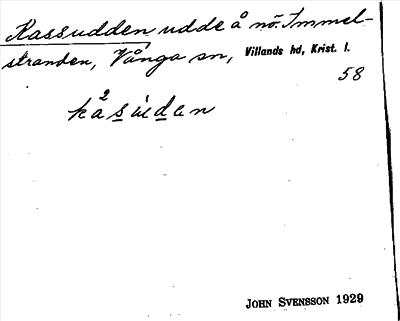 Kassudden, udde å nö. Immel-
stranden, Vånga sn, Villands hd, Krist. l.
58
kа2sùdan
John Svensson 1929